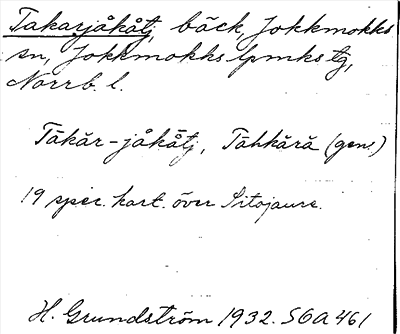 Takarjåkåtj, bäck, Jokkmokks
sn, Jokkmokks lpmks tg,
Norrb. l.
Tākăr-jåkåtj, Tāhkără (gen.)
19 spec. kart. över Sitojaure.
H. Grundström 1932. SOA 461